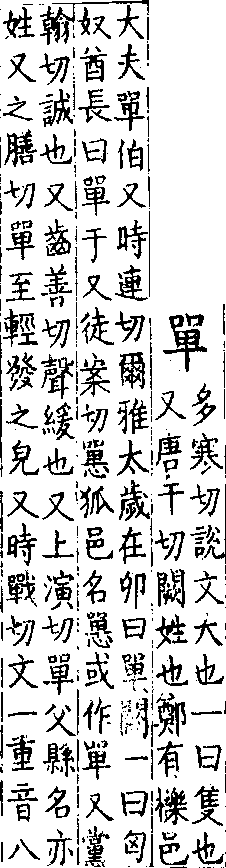 單
多寒切說文大也一曰隻也
又唐干切闕姓也鄭有櫟邑
大夫單伯又時連切爾雅太歲在卯曰單閼一曰匈
奴酋長曰單于又徒案切狐邑名或作單又黨
翰切誠也又齒善切聲緩也又上演切單父縣名亦
姓又之膳切單至輕發之皃又時戰切文一重音八